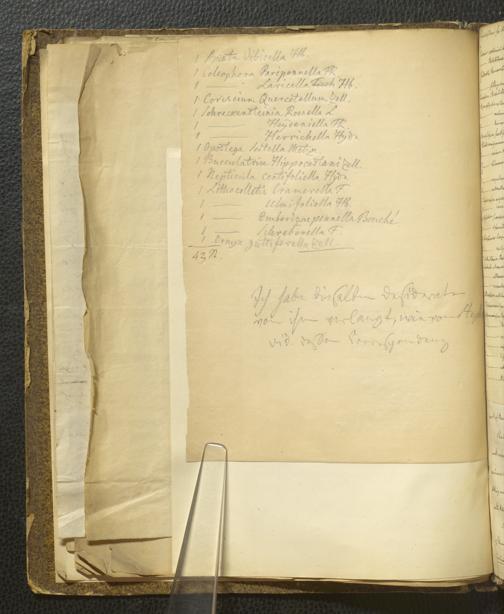 1 Ornix Vibicella Hb.
1 Coleophora Paripennella Th.
1 —— Laricella Hb.
1 Coriscium Quercetellum Zell.
1 Schreckensteinia Roesella L
1 —— Heydeniella Th.
1 —— Herrichella Hyda
1 Apotega
1 Bucculatrix Hippocastani Zell.
1 Nepticula centifoliella Hyda
1 Lithocolletis Cramerella F.
1 —— Ulmifoliella Hb.
1 —— Emberizaepennella Bouché
1 —— Schreberella F.
1 guttiferella Zell.
43 N.
Ich habe dieselben Desiderate
von ihm verlangt, wie von
vid. dessen Correspondenz